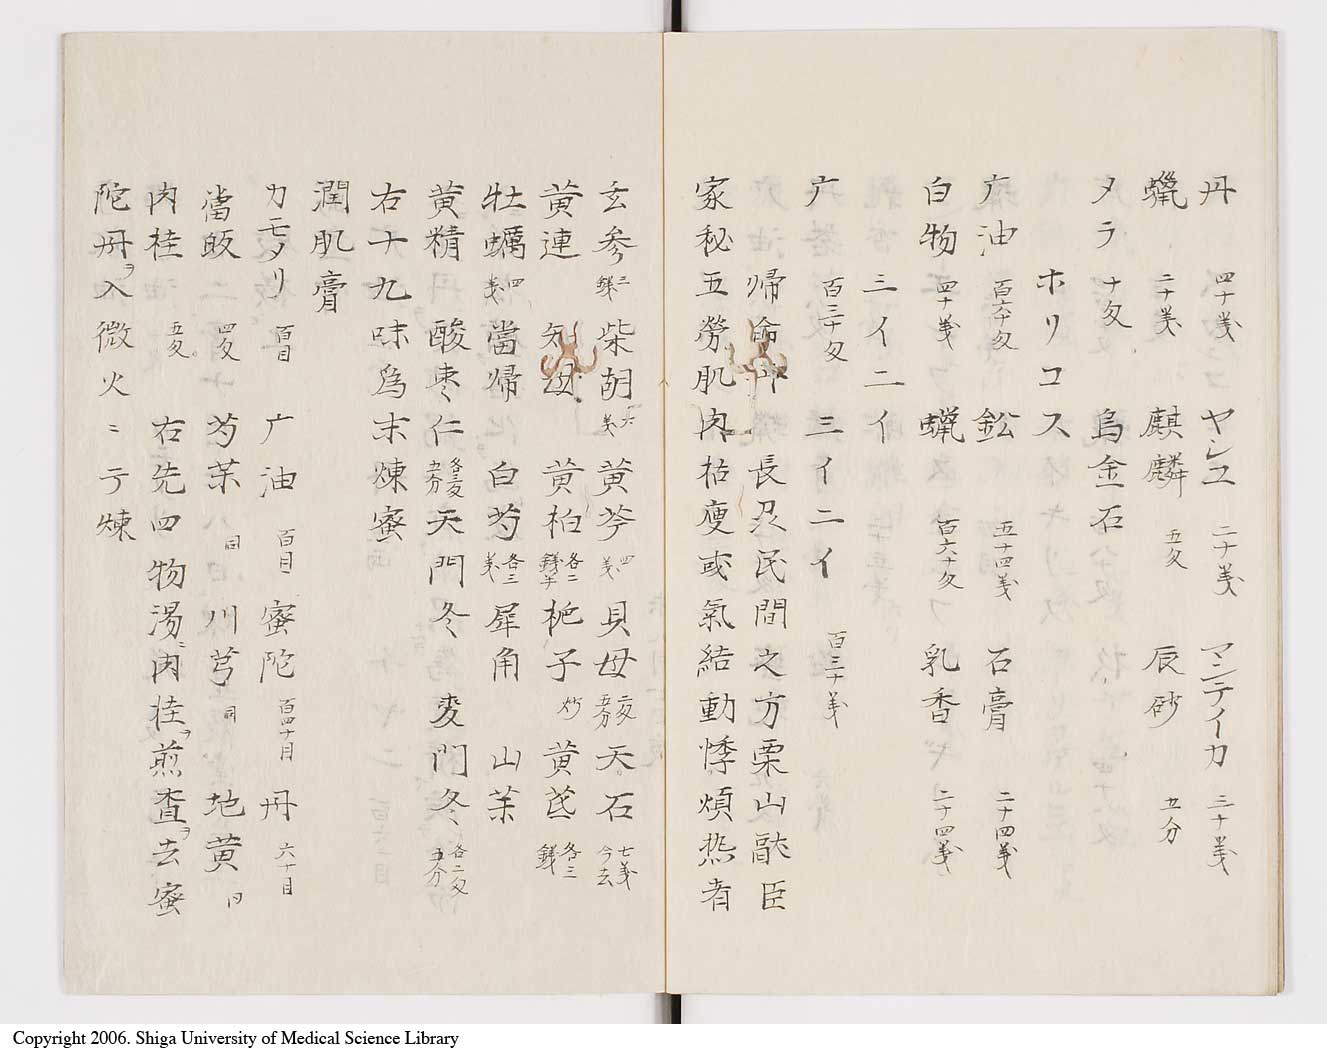 丹 四十戔 ヤシユ 二十戔 マンテイカ 三十戔
蠟 二十戔 麒麟 五匁 辰砂 五分
タラ 十匁 烏金石
ホリコス
广油 百六十匁 鈆 五十四戔 石膏 二十四戔
白物 四十戔 蠟 百六十匁 乳香 二十四戔
三イ二イ
广 百三十匁 三イ二イ 百三十戔
帰命丹 長忍民間之方栗山献臣
家秘五勞肌肉枯痩或氣結動悸煩热者
玄参 三錢 柴胡 六戔 黄芩 四戔 貝母 二匁五分 天石 七戔今去
黄連 知母 黄柏 各二錢半 梔子 炒 黄芪 各三錢
牡蠣 四戔 當帰 白芍 各三戔 犀角 山茱
黄精 酸棗仁 各三匁五分 天門冬 麦門冬 各二匁五分
右十九味為末煉蜜
潤肌膏
カモメリ 百目 广油 百目 蜜陀 百四十目 丹 六十目
當皈 四匁 芍茱 同 川芎 同 地黄 同
肉桂 五匁 右先四物湯ニ肉桂ヲ煎査ヲ去蜜
陀丹ヲ入微火ニ〆煉